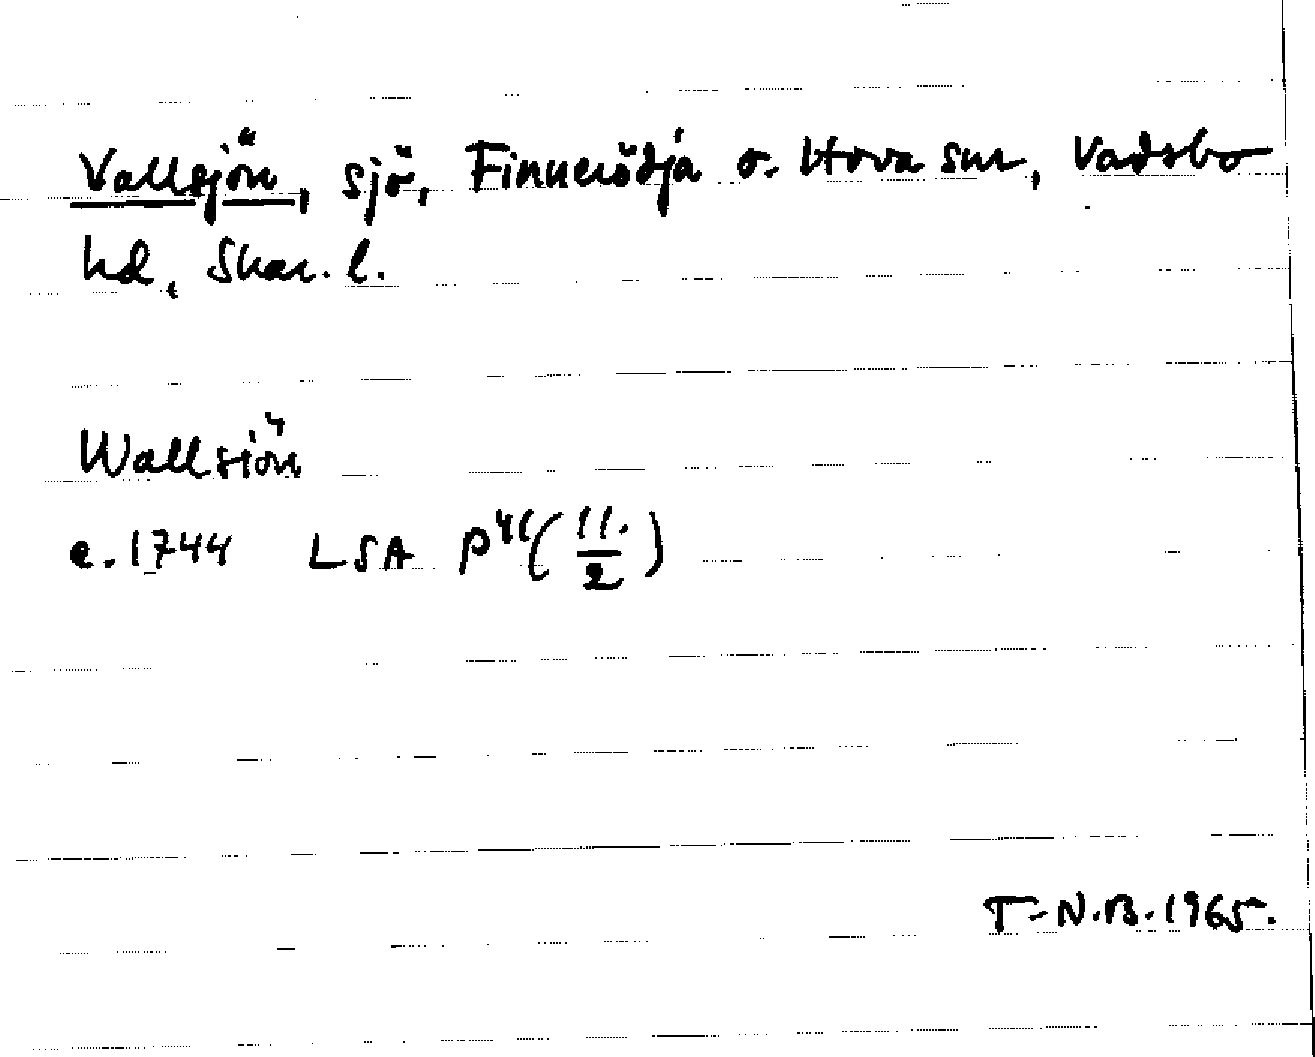 Vallsjön, sjö, Finnerödja o. Hova snr, Vadsbo
hd, Skar. l.
Wallsiön
c. 1744 LSA P 41 (11./2)
T-N.B. 1965.